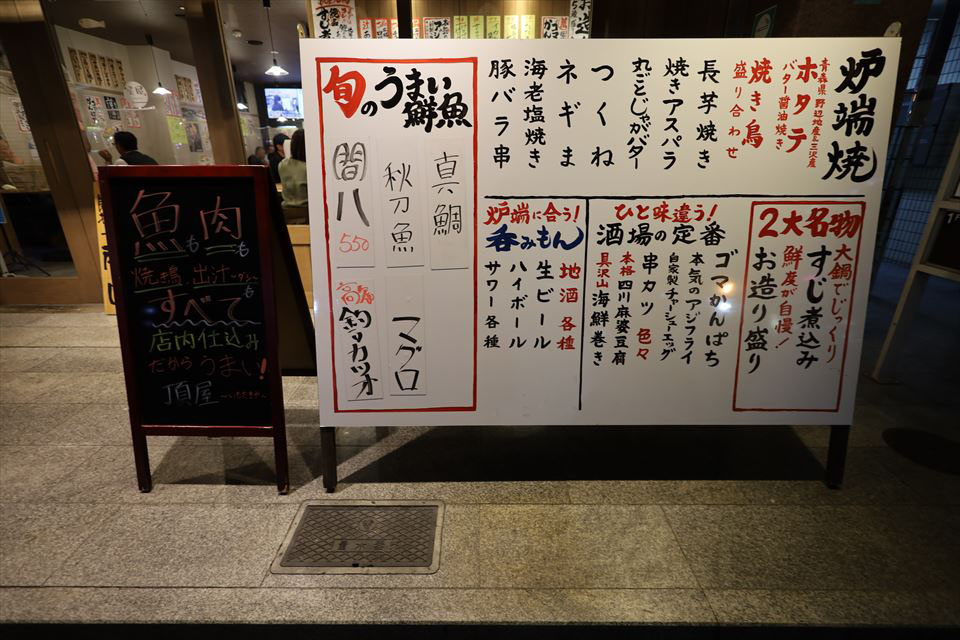 炉端焼
青森県野辺地産&三沢産
ホタテ
バター醤油焼き
焼き鳥
盛り合わせ
長芋焼き
焼きアスパラ
丸ごとじゃがバター
つくね
ネギま
海老塩焼き
豚バラ串
2大名物
大鍋でじっくり
すじ煮込み
鮮度が自慢!
お造り盛り
ひと味違う!
酒場の定番
ゴマかんぱち
本気のアジフライ
自家製チャーシューエッグ
串カツ 色々
本格四川麻婆豆腐
具沢山海鮮巻き
炉端に合う!
呑みもん
地酒各種
生ビール
ハイボール
サワー各種
旬のうまい鮮魚
真鯛
秋刀魚
間八
550
マグロ
釣りカツオ
魚も
肉も
焼き鳥、出汁
すべて
店内仕込み
だからうまい!
頂屋